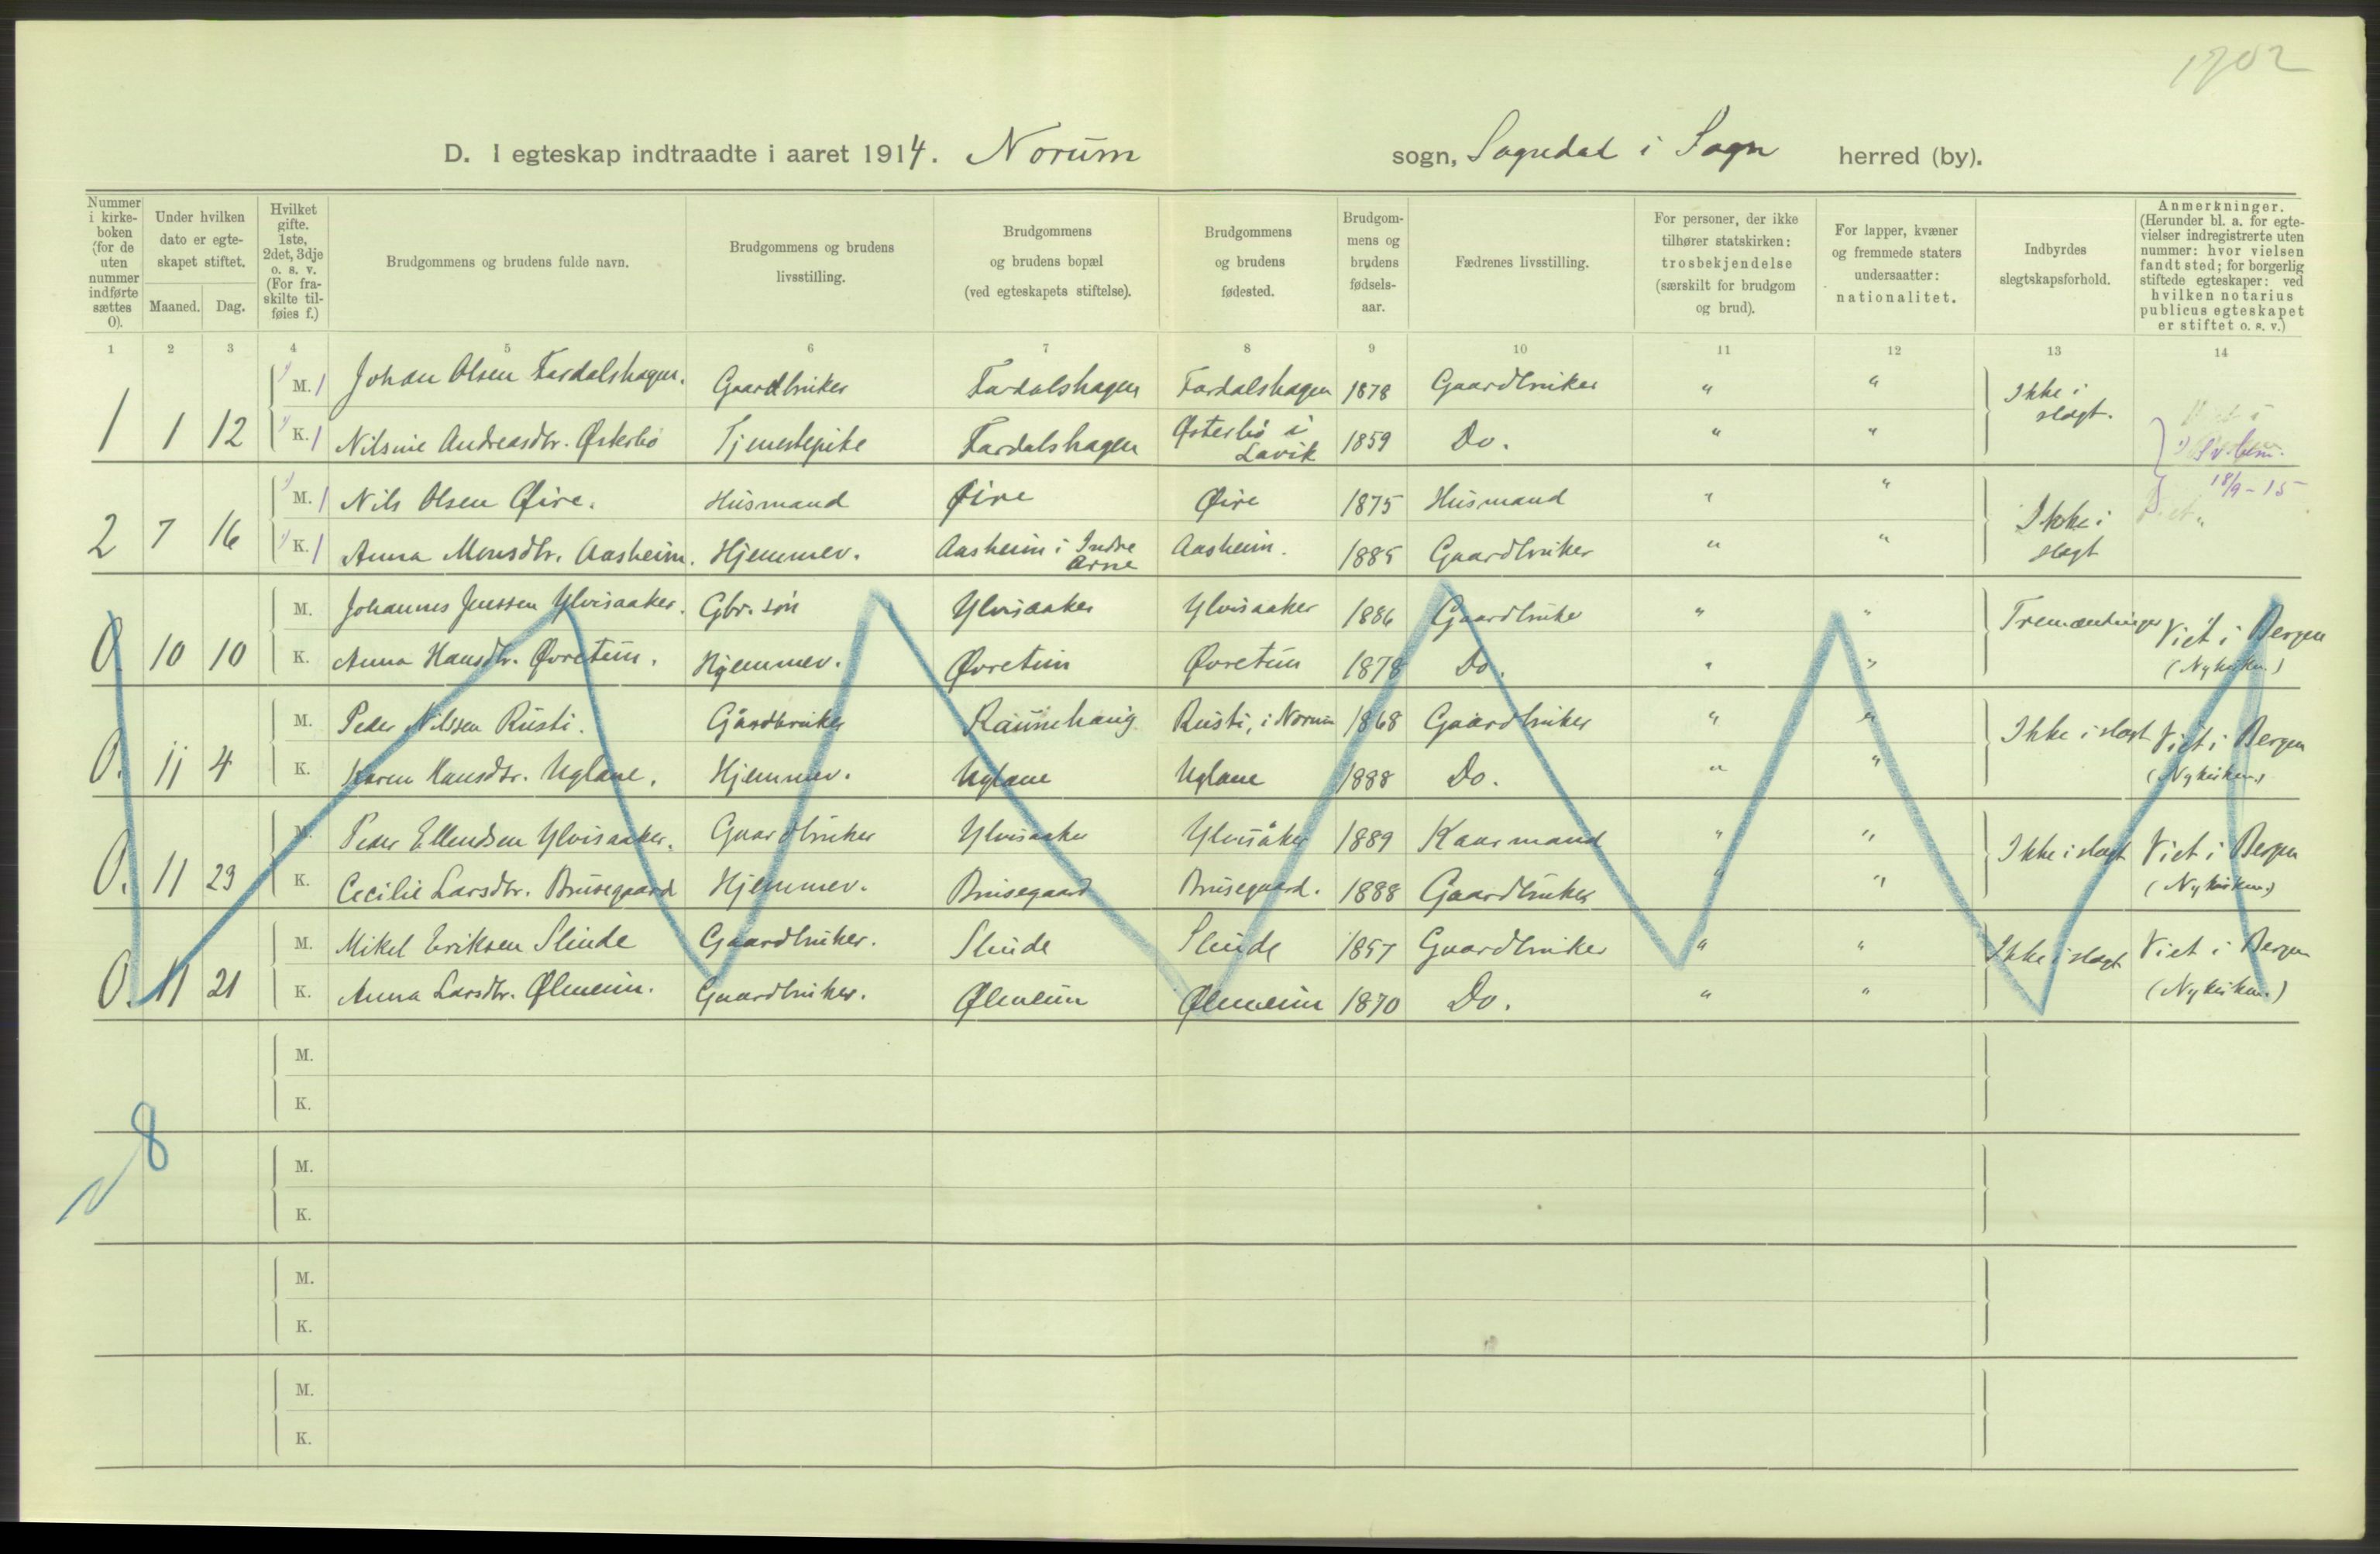 1902
D. I egteskap indtraadte i aaret 1914. Norum sogn, Sogndal i Sogn herred (by).
Nummer i kirke-boken (for de uten nummer indførte sættes 0).
Under hvilken dato er egte-skapet stiftet.
Maaned. Dag.
Hvilket gifte. 1ste, 2det, 3dje o. s. v. (For fra-skilte til-føies f.)
Brudgommens og brudens fulde navn.
Brudgommens og brudens livsstilling.
Brudgommens og brudens bopæl (ved egteskapets stiftelse).
Brudgommens og brudens fødested.
Brudgom-mens og brudens fødsels-aar.
Fædrenes livsstilling.
For personer, der ikke tilhører statskirken: trosbekjendelse (særskilt for brudgom og brud).
For lapper, kvæner og fremmede staters undersaatter: nationalitet.
Indbyrdes slegtskapsforhold.
Anmerkninger. (Herunder bl. a. for egte-vielser indregistrerte uten nummer: hvor vielsen fandt sted; for borgerlig stiftede egteskaper: ved hvilken notarius publicus egteskapet er stiftet o. s. v.)
1 2 3 4 5 6 7 8 9 10 11 12 13 14
M. 1 Johan Olsen Fardalshagen. Gaardbruker Fardalshagen Fardalshagen 1878 Gaardbruker " " Ikke i slegt.
1 1 12 K. 1 Nilsine Andreasdtr. Østerbø Tjenestepike Fardalshagen Østerbø i Lavik 1859 Do. " "
18/9-15
M. 1 Nils Olsen Øire. Husmand Øire Øire 1875 Husmand " " Ikke i slegt
2 7 16 K. 1 Anna Monsdtr. Aasheim. Hjemmev. Aasheim i Indre Arne Aasheim. 1885 Gaardbruker " "
M. Johannes Jenssen Ylvisaaker. Gbr. søn Ylvisaaker Ylvisaaker 1886 Gaardbruker " " Tremændinger Viet i Bergen
0. 10 10 K. Anna Hansdtr. Øvretun. Hjemmev. Øvretun Øvretun 1878 Do. " " (Nykirken.)
M. Peder Nilssen Rusti. Gaardbruker Raunehaug Rusti, i Norum 1868 Gaardbruker " " Ikke i slegt Viet i Bergen
0. 11 4 K. Karen Hansdtr. Uglane. Hjemmev. Uglane Uglane 1888 Do. " " (Nykirken.)
M. Peder Ellendsen Ylvisaaker. Gaardbruker Ylvisaaker Ylvisåker 1889 Kaarmand " " Ikke i slegt Viet i Bergen
0. 11 23 K. Cecilie Larsdtr. Brusegaard Hjemmev. Brusegaard Brusegaard. 1888 Gaardbruker " " (Nykirken.)
M. Mikel Eriksen Slinde Gaardbruker. Slinde Slinde 1857 Gaardbruker " " Ikke i slegt Viet i Bergen
0. 11 21 K. Anna Larsdtr. Ølmeim. Gaardbruker. Ølmeim Ølmeim 1870 Do. " " (Nykirken.)
M.
K.
8
M.
K.
M.
K.
M.
K.